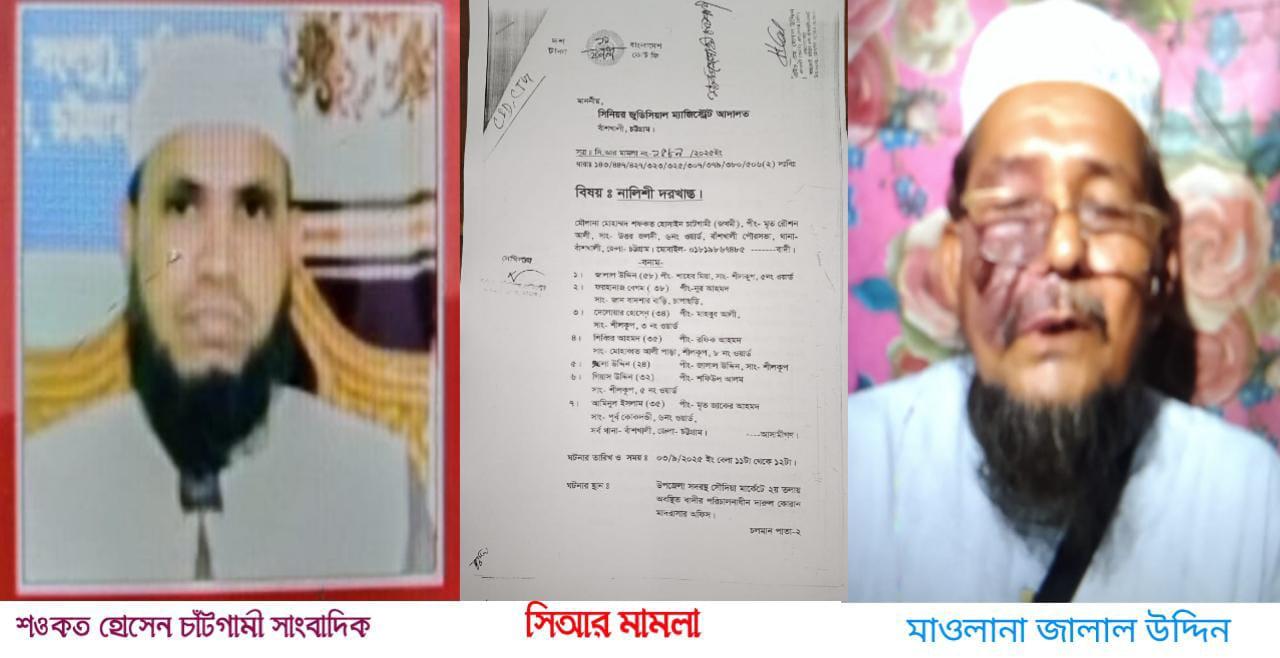 মাননীয়,
সিনিয়র জুডিসিয়াল ম্যাজিস্ট্রেট আদালত
বাঁশখালী, চট্টগ্রাম।
সূত্রঃ সি.আর মামলা নং- /২০২৫ইং
ধারাঃ ১৪৩/৪৪৭/৪২৭/৩২৩/৩২৫/৩০৭/৩৭৯/৩৮০/৫০৬(২) দঃবিঃ
বিষয় ঃ নালিশী দরখাস্ত।
মৌলানা মোহাম্মদ শফকত হোসাইন চাটগামী (জখমী), পীং- মৃত রৌশন
আলী, সাং- উত্তর জলদী, ৬নং ওয়ার্ড, বাঁশখালী পৌরসভা, থানা-
বাঁশখালী, জেলা- চট্টগ্রাম। মোবাইল- ০১৮১৯৮৬৭৪৮৫ -------বাদী।
-বনাম-
১। জালাল উদ্দিন (৫৮) পীং- শাহেব মিয়া, সাং- শীলকূপ, ৫নং ওয়ার্ড
২। ফরহানাজ বেগম (৩৮) পীং-নুর আহমদ
সাং- জান বাদশার বাড়ি, চাপাছড়ি,
৩। দেলোয়ার হোসেন (৩৪) পীং- মাহবুব আলী,
সাং- শীলকূপ, ৩ নং ওয়ার্ড
৪। শিব্বির আহমদ (৩৫) পীং- রফিক আহমদ
সাং- মোহাব্বত আলী পাড়া, শীলকূপ, ৮ নং ওয়ার্ড
৫। উদ্দিন (২৪) পীং- জালাল উদ্দিন, সাং- শীলকূপ
৬। গিয়াস উদ্দিন (৩২) পীং- শফিউল আলম
সাং- শীলকূপ, ৫ নং ওয়ার্ড
৭। আমিনুল ইসলাম (৩৫) পীং- মৃত জাকের আহমদ
সাং- পূর্ব কোকদন্ডী, ৬নং ওয়ার্ড,
সর্ব থানা- বাঁশখালী, জেলা- চট্টগ্রাম। ----আসামীগণ।
ঘটনার তারিখ ও সময় ঃ ০৩/৯/২০২৫ ইং বেলা ১১টা থেকে ১২টা।
ঘটনার স্থান ঃ উপজেলা সদরস্থ সৌদিয়া মার্কেটে ২য় তলায়
অবস্থিত বাদীর পরিচালনাধীন দারুল কোরান
মাদ্রাসার অফিস।
চলমান পাতা-২
শওকত হোসেন চাঁটগামী সাংবাদিক
সিআর মামলা
মাওলানা জালাল উদ্দিন